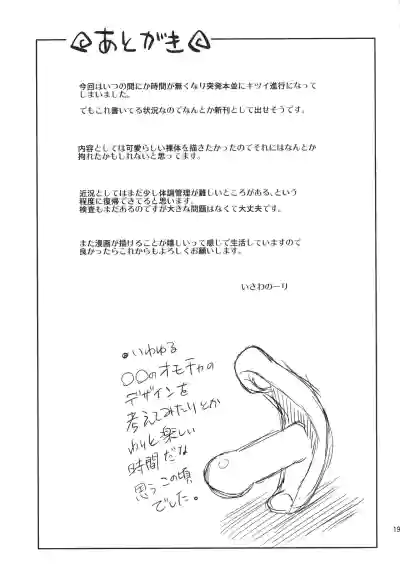 あとがき
今回はいつの間にか時間が無くなり突発本並にキツイ進行になって
しまいました。
でもこれ書いてる状況なのでなんとか新刊として出せそうです。
内容としては可愛らしい裸体を描きたかったのでそれにはなんとか
拘れたかもしれないと思ってます。
近況としてはまだ少し体調管理が難しいところがある、という
程度に復帰できてると思います。
検査もまだあるのですが大きな問題はなくて大丈夫です。
また漫画が描けることが嬉しいって感じで生活していますので
良かったらこれからもよろしくお願いします。
いさわのーり
•いわゆる
○○のオモチャの
デザインを
考えてみたりとか
わりと楽しい
時間だな
思うこの頃
でした。
19